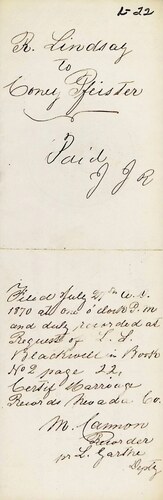 L 22
R. Lindsay
to
Coney Pfeister
Paid
J J R
Filed July 27th A.D.
1870 at one o'clock P.m
and duly recorded at
Request of L. L.
Blackwell in Book
No 2 page 22,
Certif Marriage
Records Nevada Co.
M. Cannon
Recorder
pr L. Garthe
Depty